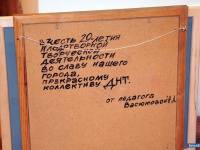 В ЧЕСТЬ 20-ЛЕТИЯ
ПЛОДОТВОРНОЙ
ТВОРЧЕСКОЙ
ДЕЯТЕЛЬНОСТИ
ВО СЛАВУ НАШЕГО
ГОРОДА,
ПРЕКРАСНОМУ
КОЛЛЕКТИВУ ДНТ.
ОТ ПЕДАГОГА
Васюковой